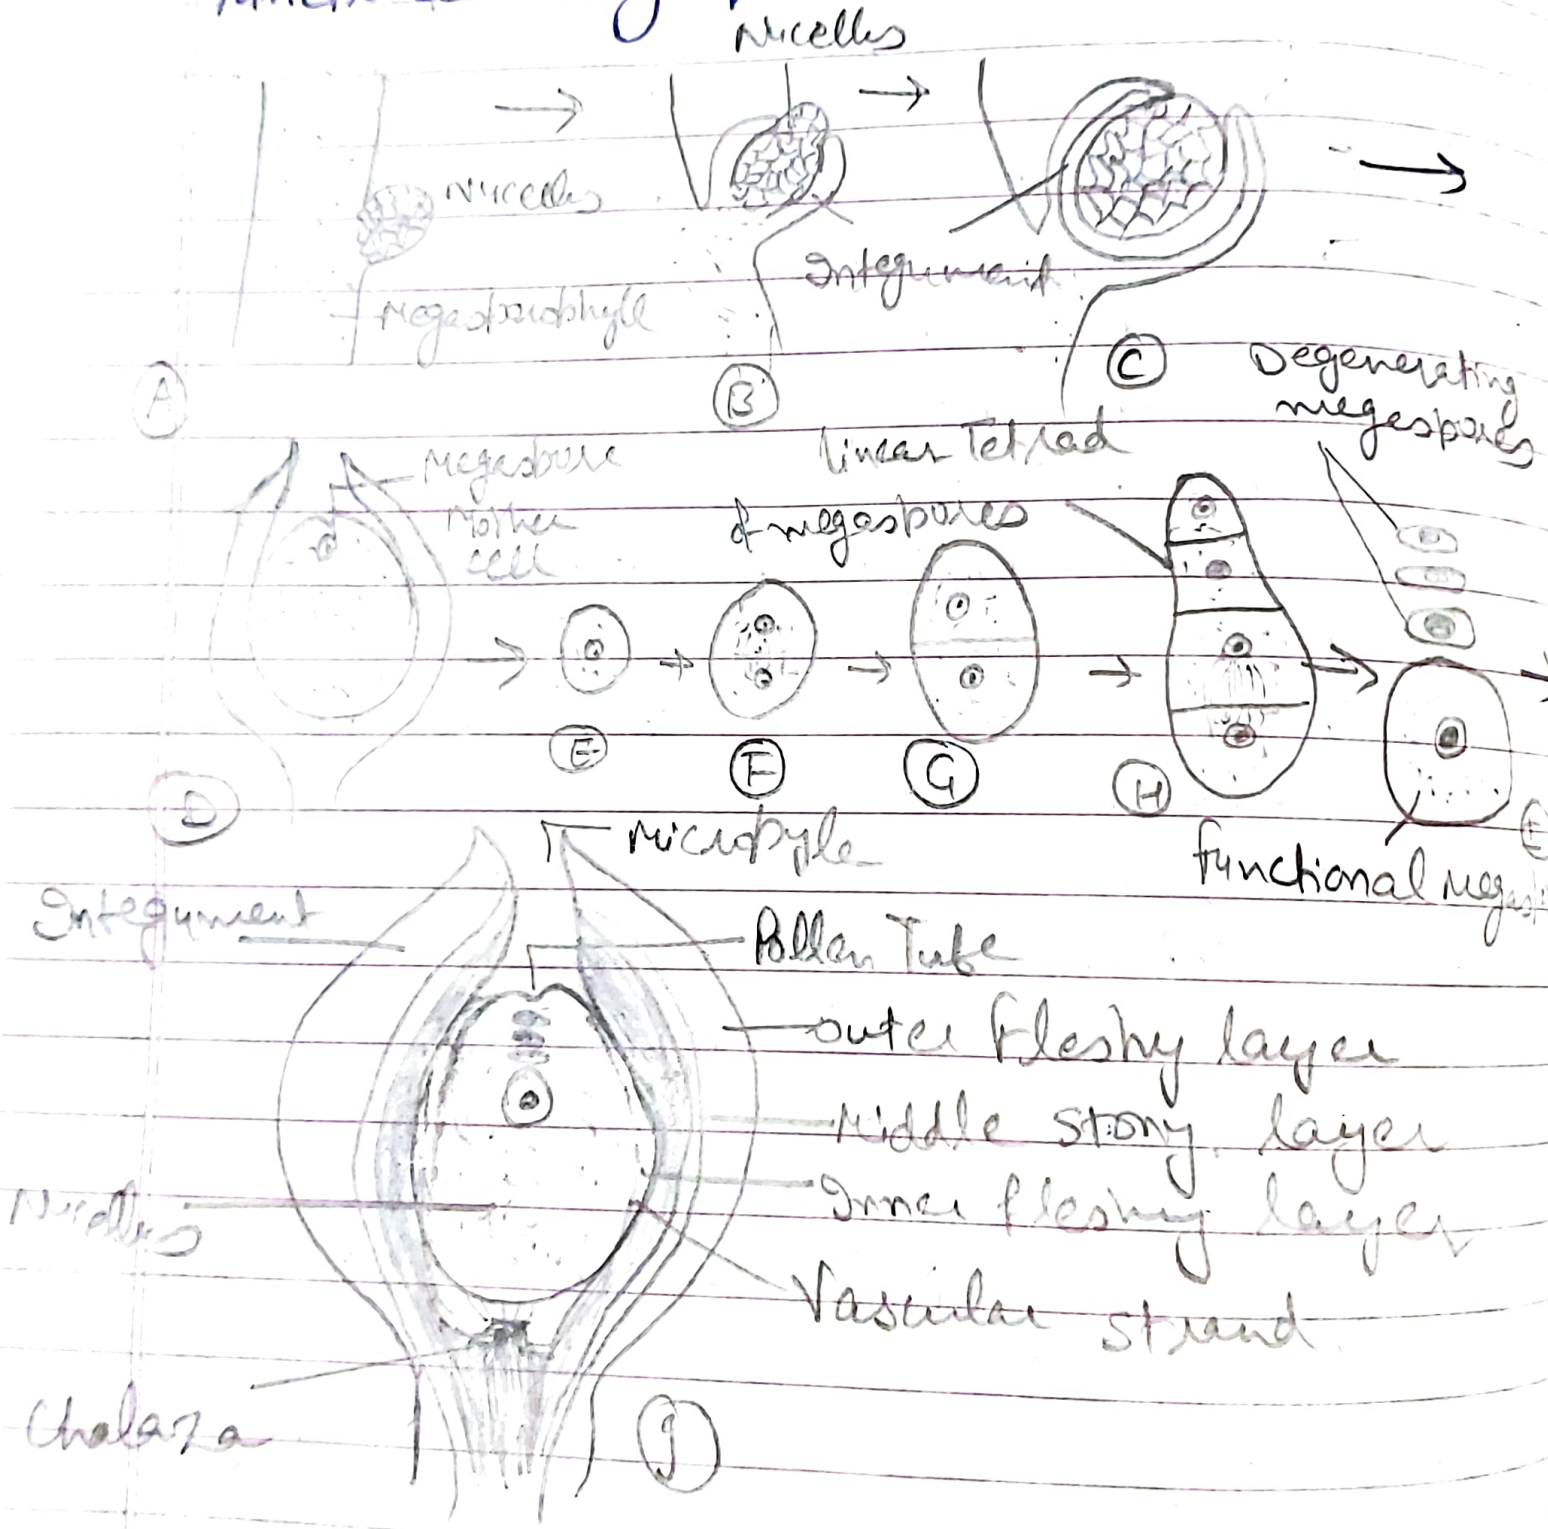 Nucellus
Nucellus
Integument
Megasporophyll
A
B
C
Degenerating
megespores
Megaspore
Mother
cell
linear Tetrad
of megaspores
D
E
F
G
H
functional
Micropyle
Integument
Pollen Tube
outer fleshy layer
Middle stony layer
Inner fleshy layer
Nucellus
Vascular strand
Chalaza